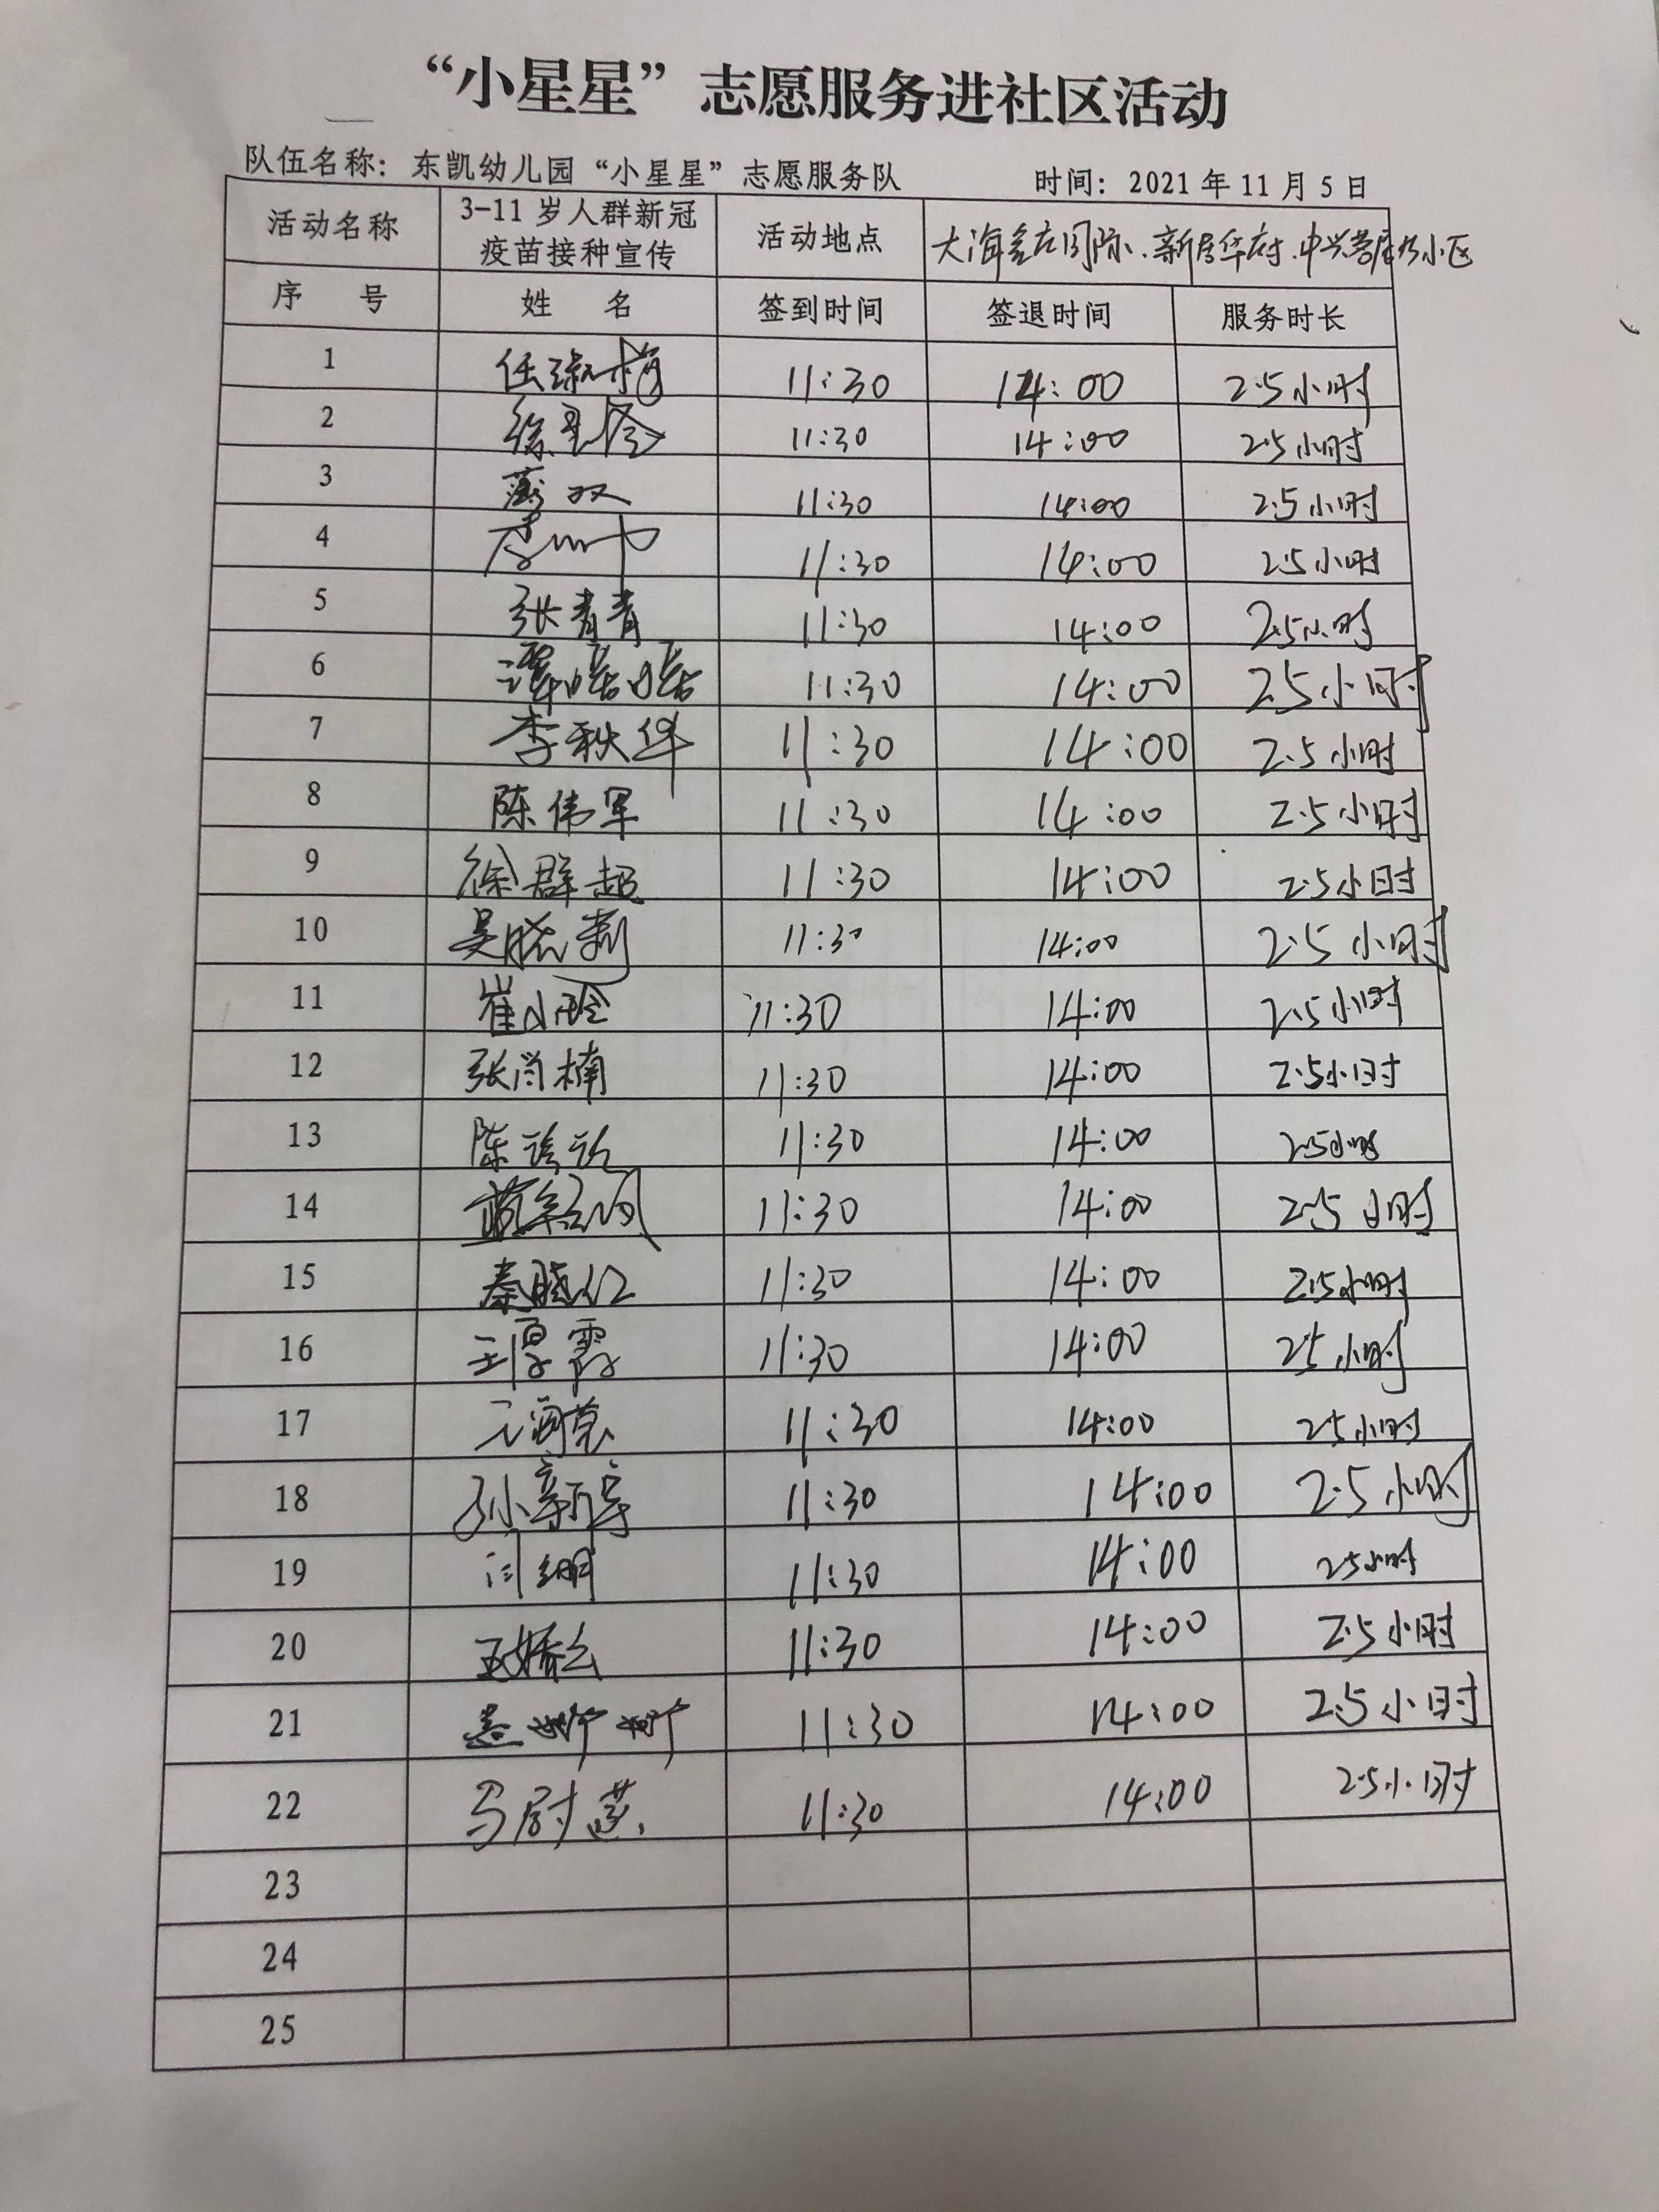 “小星星”志愿服务进社区活动
队伍名称：东凯幼儿园“小星星”志愿服务队 时间：2021年11月5日
活动名称 3-11岁人群新冠疫苗接种宣传 活动地点 大海 国际、新 华府、中兴 小区
序 号 姓 名 签到时间 签退时间 服务时长
1 任 梅 11:30 14:00 2.5小时
2 徐 11:30 14:00 2.5小时
3 双 11:30 14:00 2.5小时
4 11:30 14:00 2.5小时
5 张青青 11:30 14:00 2.5小时
6 谭 11:30 14:00 2.5小时
7 李秋华 11:30 14:00 2.5小时
8 陈伟军 11:30 14:00 2.5小时
9 徐群超 11:30 14:00 2.5小时
10 吴晓莉 11:30 14:00 2.5小时
11 崔小玲 11:30 14:00 2.5小时
12 张肖楠 11:30 14:00 2.5小时
13 陈 11:30 14:00 2.5小时
14 11:30 14:00 2.5小时
15 秦晓红 11:30 14:00 2.5小时
16 王 霞 11:30 14:00 25小时
17 11:30 14:00 25小时
18 孙新 11:30 14:00 2.5小时
19 闫 11:30 14:00 25小时
20 11:30 14:00 2.5小时
21 11:30 14:00 2.5小时
22 马尉 11:30 14:00 2.5小时
23
24
25